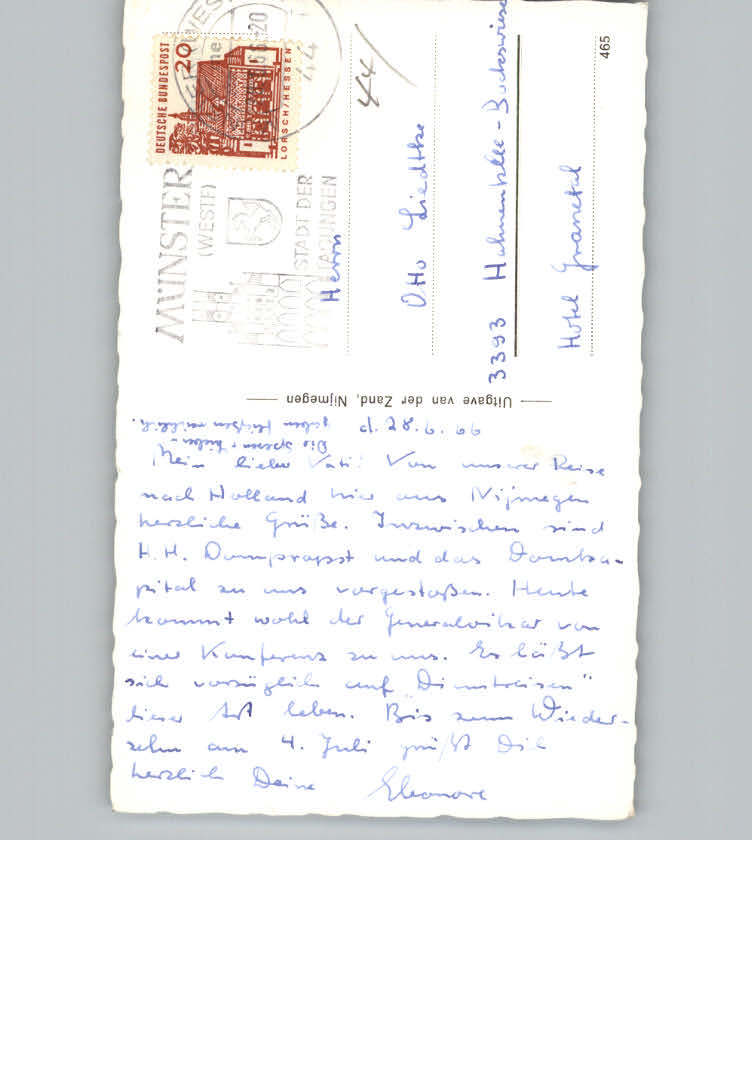 DEUTSCHE BUNDESPOST
20
LORSCH/HESSEN
44
MÜNSTER
(WESTF)
STADT DER
TAGUNGEN
44/
Herrn
Otto Liedtke
3393 Hahnenklee - Bockswiese
Hotel Granetal
465
Uitgave van der Zand, Nijmegen
d. 28.6.66
Mein lieber Vati! Von unserer Reise
nach Holland hier aus Nijmegen
herzliche Grüße. Inzwischen sind
H. H. Dompropst und das Domka-
pital zu uns vorgestoßen. Heute
kommt wohl der Generalvikar von
einer Konferenz zu uns. Es läßt
sich vorzüglich auf "Dienstreisen"
dieser Art leben. Bis zum Wieder-
sehn am 4. Juli grüßt Dich
herzlich Deine Eleonore
Die Spesen
fließen reichlich.